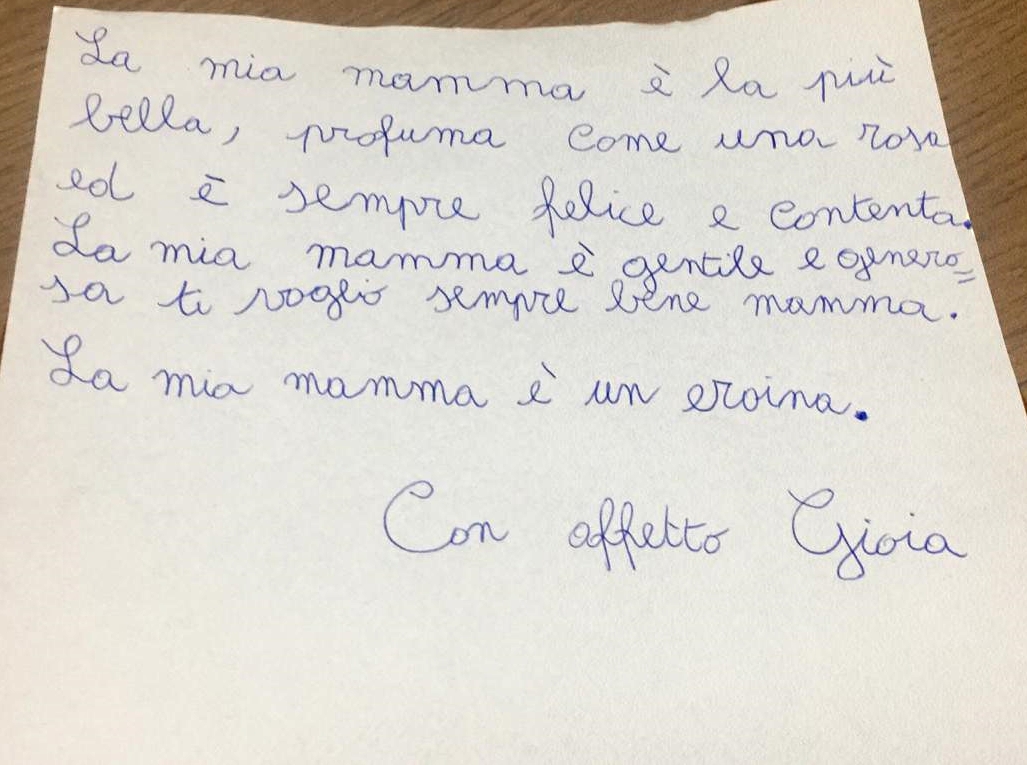 La mia mamma è la più
bella, profuma come una rosa
ed è sempre felice e contenta.
La mia mamma è gentile e genero=
sa ti voglio sempre bene mamma.
La mia mamma è un eroina.
Con affetto Gioia